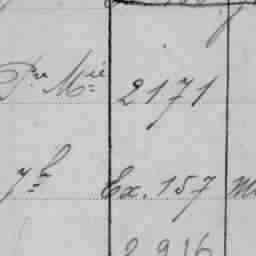 Dre Mie 2171
7b Ex. 157
2916